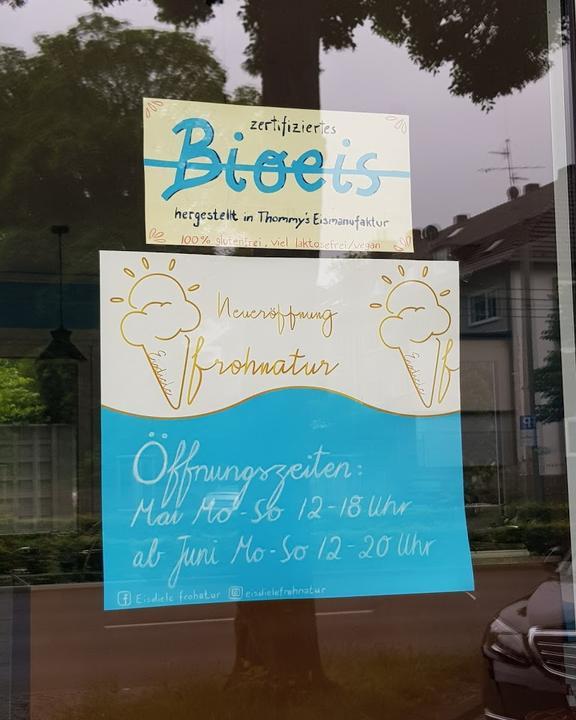 zertifiziertes
Bioeis
hergestellt in Thommy's Eismanufaktur
100% glutenfrei, viel laktosefrei/vegan
Neueröffnung
frohnatur
Eisdiele
Eisdiele
f
Öffnungszeiten:
Mai Mo-So 12-18 Uhr
ab Juni Mo-So 12-20 Uhr
Eisdiele frohatur eisdielefrohnatur